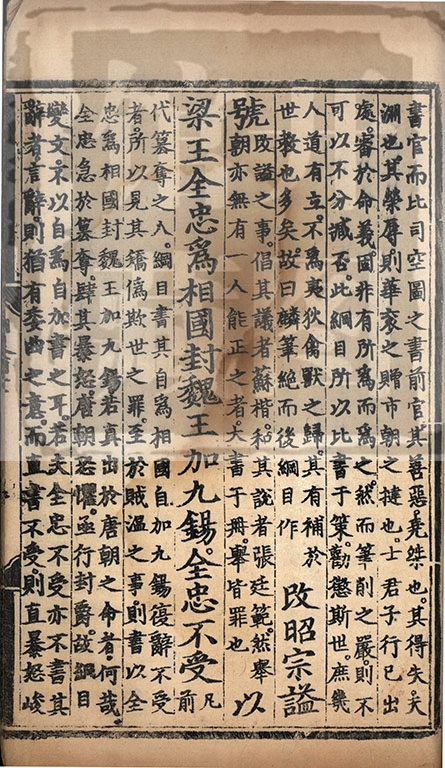 書官而比司空圖之書前官其善惡堯桀也其得失天
淵也其榮辱則華袞之贈市朝之撻也士君子行已出
處審於命義固非有所爲而爲之然而筆削之嚴則不
可以不分臧否此綱目所以比書于策勸懲斯世庶幾
人道有立不爲夷狄禽獸之歸其有補於
世教也多矣故曰麟筆絕而後綱目作
改昭宗謚
號
改謚之事倡其議者蘇楷和其說者張廷範然舉
朝亦無有一人能正之者大書于冊舉皆罪也
以
梁王全忠爲相國封魏王加九錫全忠不受
凡前
代簒奪之人綱目書其自爲相國自加九錫復辭不受
者所以見其矯僞欺世之罪至於賊溫之事則書以全
忠爲相國封魏王加九錫若真出於唐朝之命者何哉
全忠急於簒奪肆其暴怒唐朝恐懼亟行封爵故綱目
變文不以自爲自加書之耳若夫全忠不受亦不書其
辭者言辭則猶有委曲之意而直書不受則直暴怒峻